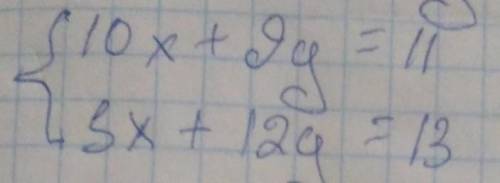 10x + 9y = 11
5x + 12y = 13